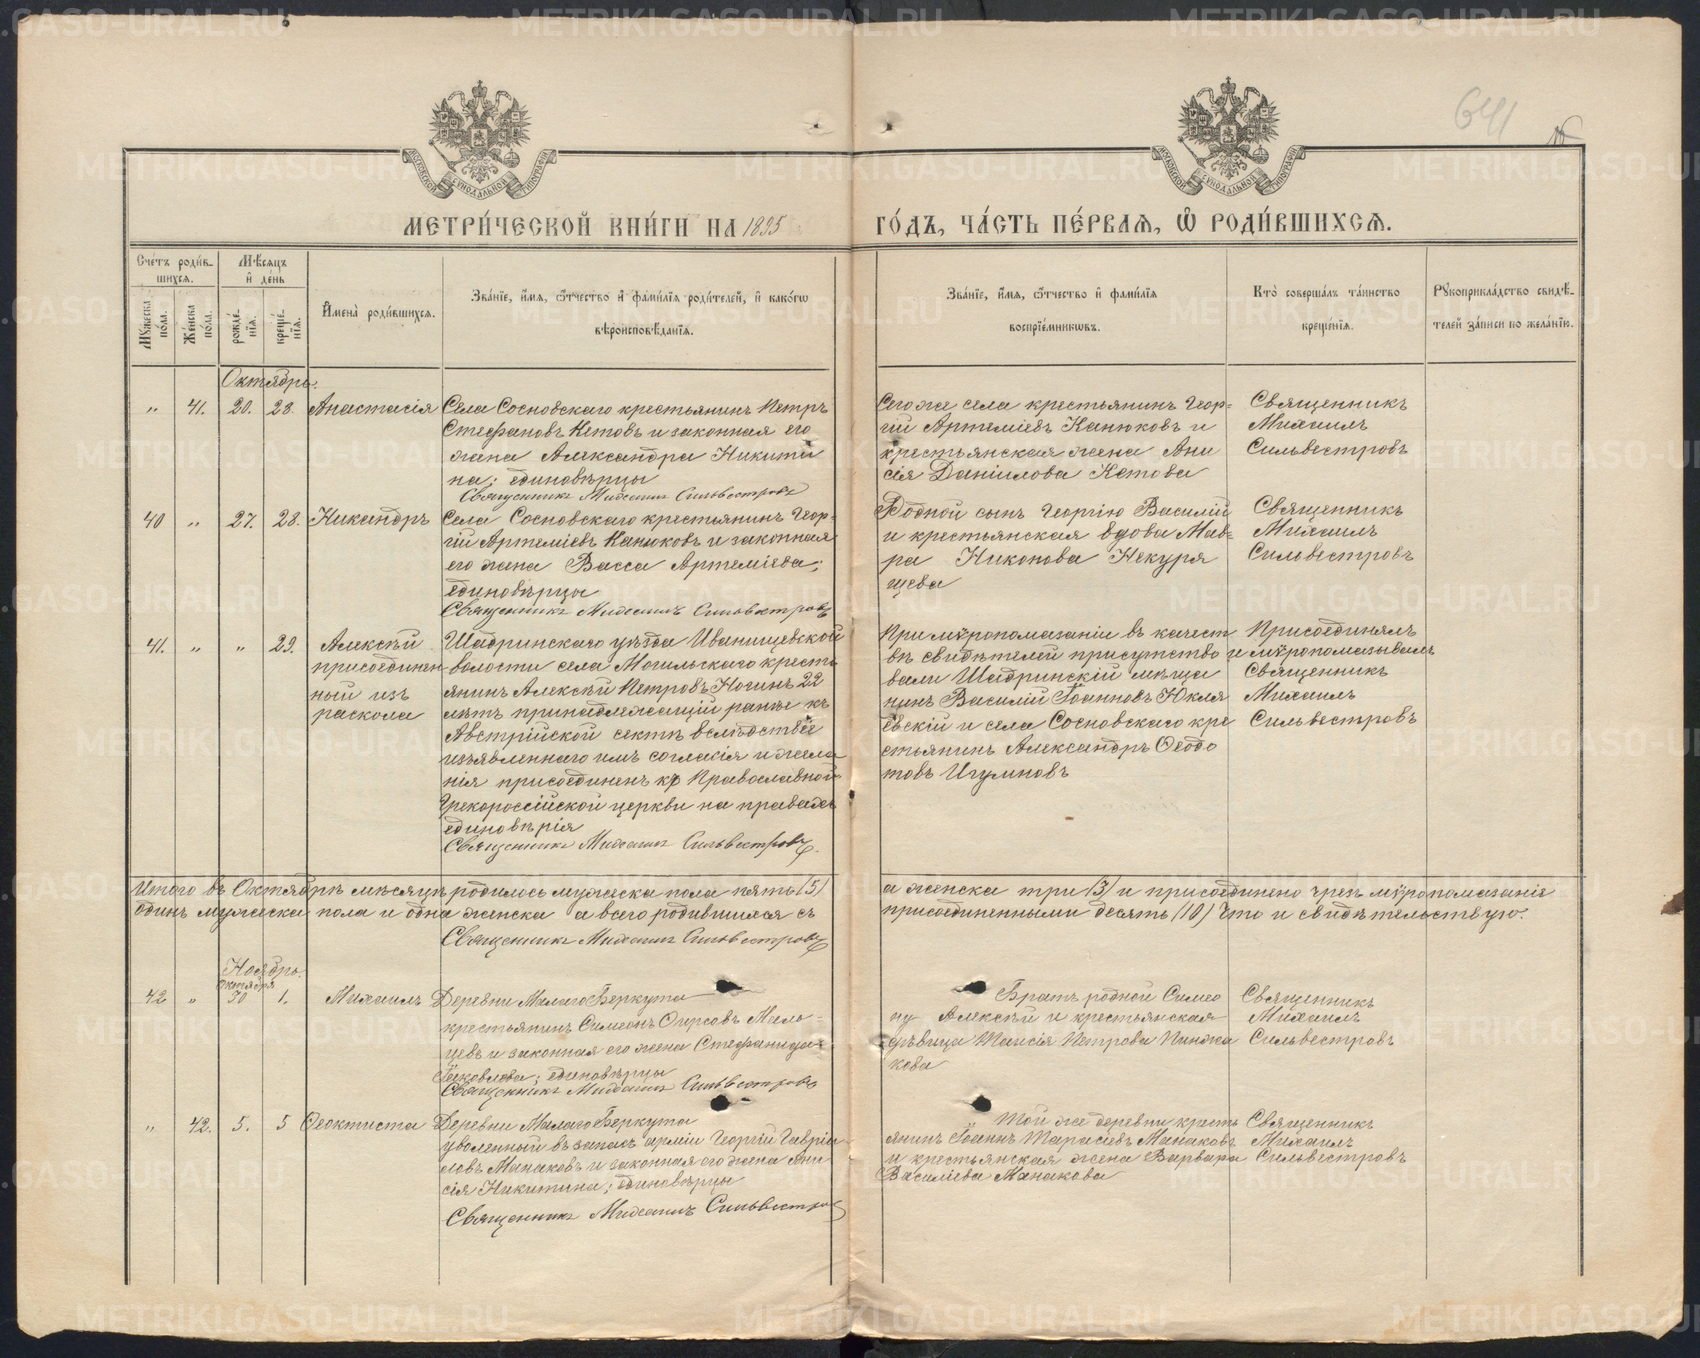 METRIKI.GASO-URAL.RU
641
МОСКОВСКОЙ СѴНОДАЛЬНОЙ ТИПОГРАФІИ
МОСКОВСКОЙ СѴНОДАЛЬНОЙ ТИПОГРАФІИ
МЕТРИ́ЧЕСКОЙ КНИ́ГИ НА 1895 ГО́ДЪ, ЧА́СТЬ ПЕ́РВАѦ, Ѿ РОДИ́ВШИХСѦ.
Сче́тъ роди́в-
шихсѧ.
Мꙋ́жеска по́ла.
Же́нска по́ла.
Мѣ́сѧцъ
и҆ де́нь
рожде́-
нїѧ.
креще́-
нїѧ.
И҆мена̀ роди́вшихсѧ.
Зва́нїе, и҆́мѧ, ѻ҆́тчество и҆ фами́лїѧ роди́телей, и҆ како́гѡ
вѣроисповѣ́данїѧ.
Зва́нїе, и҆́мѧ, ѻ҆́тчество и҆ фами́лїѧ
воспрїе́мникѡвъ.
Кто̀ соверша́лъ та́инство
креще́нїѧ.
Рꙋкоприкла́дство свидѣ́-
телей за́писи по жела́нїю.
Октябрь.
" 41. 20. 28. Анастасія
Села Сосновскаго крестьянинъ Петръ
Стефановъ Кетовъ и законная его
жена Александра Никити
на; единовѣрцы
Священникъ Михаилъ Сильвестровъ
Сего же села крестьянинъ Геор=
гій Артеміевъ Канюковъ и
крестьянская жена Ани
сія Даніилова Кетова
Священникъ
Михаилъ
Сильвестровъ
40 " 27. 28. Никандръ
Села Сосновскаго крестьянинъ Геор-
гій Артеміевъ Канюковъ и законная
его жена Васса Артеміева;
единовѣрцы
Священникъ Михаилъ Сильвестровъ
Родной сынъ Георгію Василій
и крестьянская вдова Мав=
ра Никонова Некуря
щева
Священникъ
Михаилъ
Сильвестровъ
41. " " 29. Алексѣй
присоединен
ный изъ
раскола
Шадринскаго уѣзда Иванищевской
волости села Могильскаго кресть
янинъ Алексѣй Петровъ Ногинъ 22
лѣтъ принадлежащій ранѣе къ
Австрійской сектѣ вслѣдствіе
изъявленнаго имъ согласія и жела
нія присоединенъ къ Православной
Грекороссійской церкви на правахъ
единовѣрія
Священникъ Михаилъ Сильвестровъ.
При мѵропомазаніи въ качест
вѣ свидѣтелей присутство
вали Шадринскій мѣща
нинъ Василій Іоанновъ Юкля
евскій и села Сосновскаго кре
стьянинъ Александръ Ѳеодо
товъ Игуминовъ
Присоединялъ
и мѵропомазывалъ
Священникъ
Михаилъ
Сильвестровъ
Итого въ Октябрѣ мѣсяцѣ родилось мужеска пола пять (5) а женска три (3) и присоединено чрезъ мѵропомазаніе
одинъ мужеска пола и одна женска а всего родившихся съ присоединенными десять (10) Что и свидѣтельствую.
Священникъ Михаилъ Сильвестровъ
Ноябрь.
Октября
42 " 30 1. Михаилъ
Деревни Малаго Беркута
крестьянинъ Симеонъ Ѳирсовъ Маль-
цевъ и законная его жена Стефанида
Іаковлева; единовѣрцы
Священникъ Михаилъ Сильвестровъ
Братъ родной Симео
ну Алексѣй и крестьянская
дѣвица Таисія Петрова Пинжа
кова
Священникъ
Михаилъ
Сильвестровъ
" 42. 5. 5 Ѳеоктиста
Деревни Малаго Беркута
уволенный въ запасъ арміи Георгій Гавріи
ловъ Манаковъ и законная его жена Ани
сія Никитина; единовѣрцы
Священникъ Михаилъ Сильвестровъ
Той же деревни кресть
янинъ Іоаннъ Тарасіевъ Манаковъ
и крестьянская жена Варвара
Василіева Манакова
Священникъ
Михаилъ
Сильвестровъ